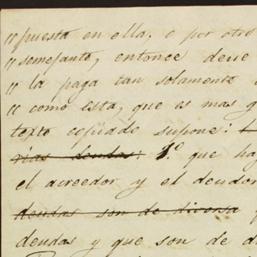 "puesta en ella, o por otro
"semejante, entonce deue
"la paga tan solamente
"como esta, que es mas g
texto copiado supone:
rias deudas: 1.º que ha
el acreedor y el deudor
deudas son de diversa
deudas y que son de d